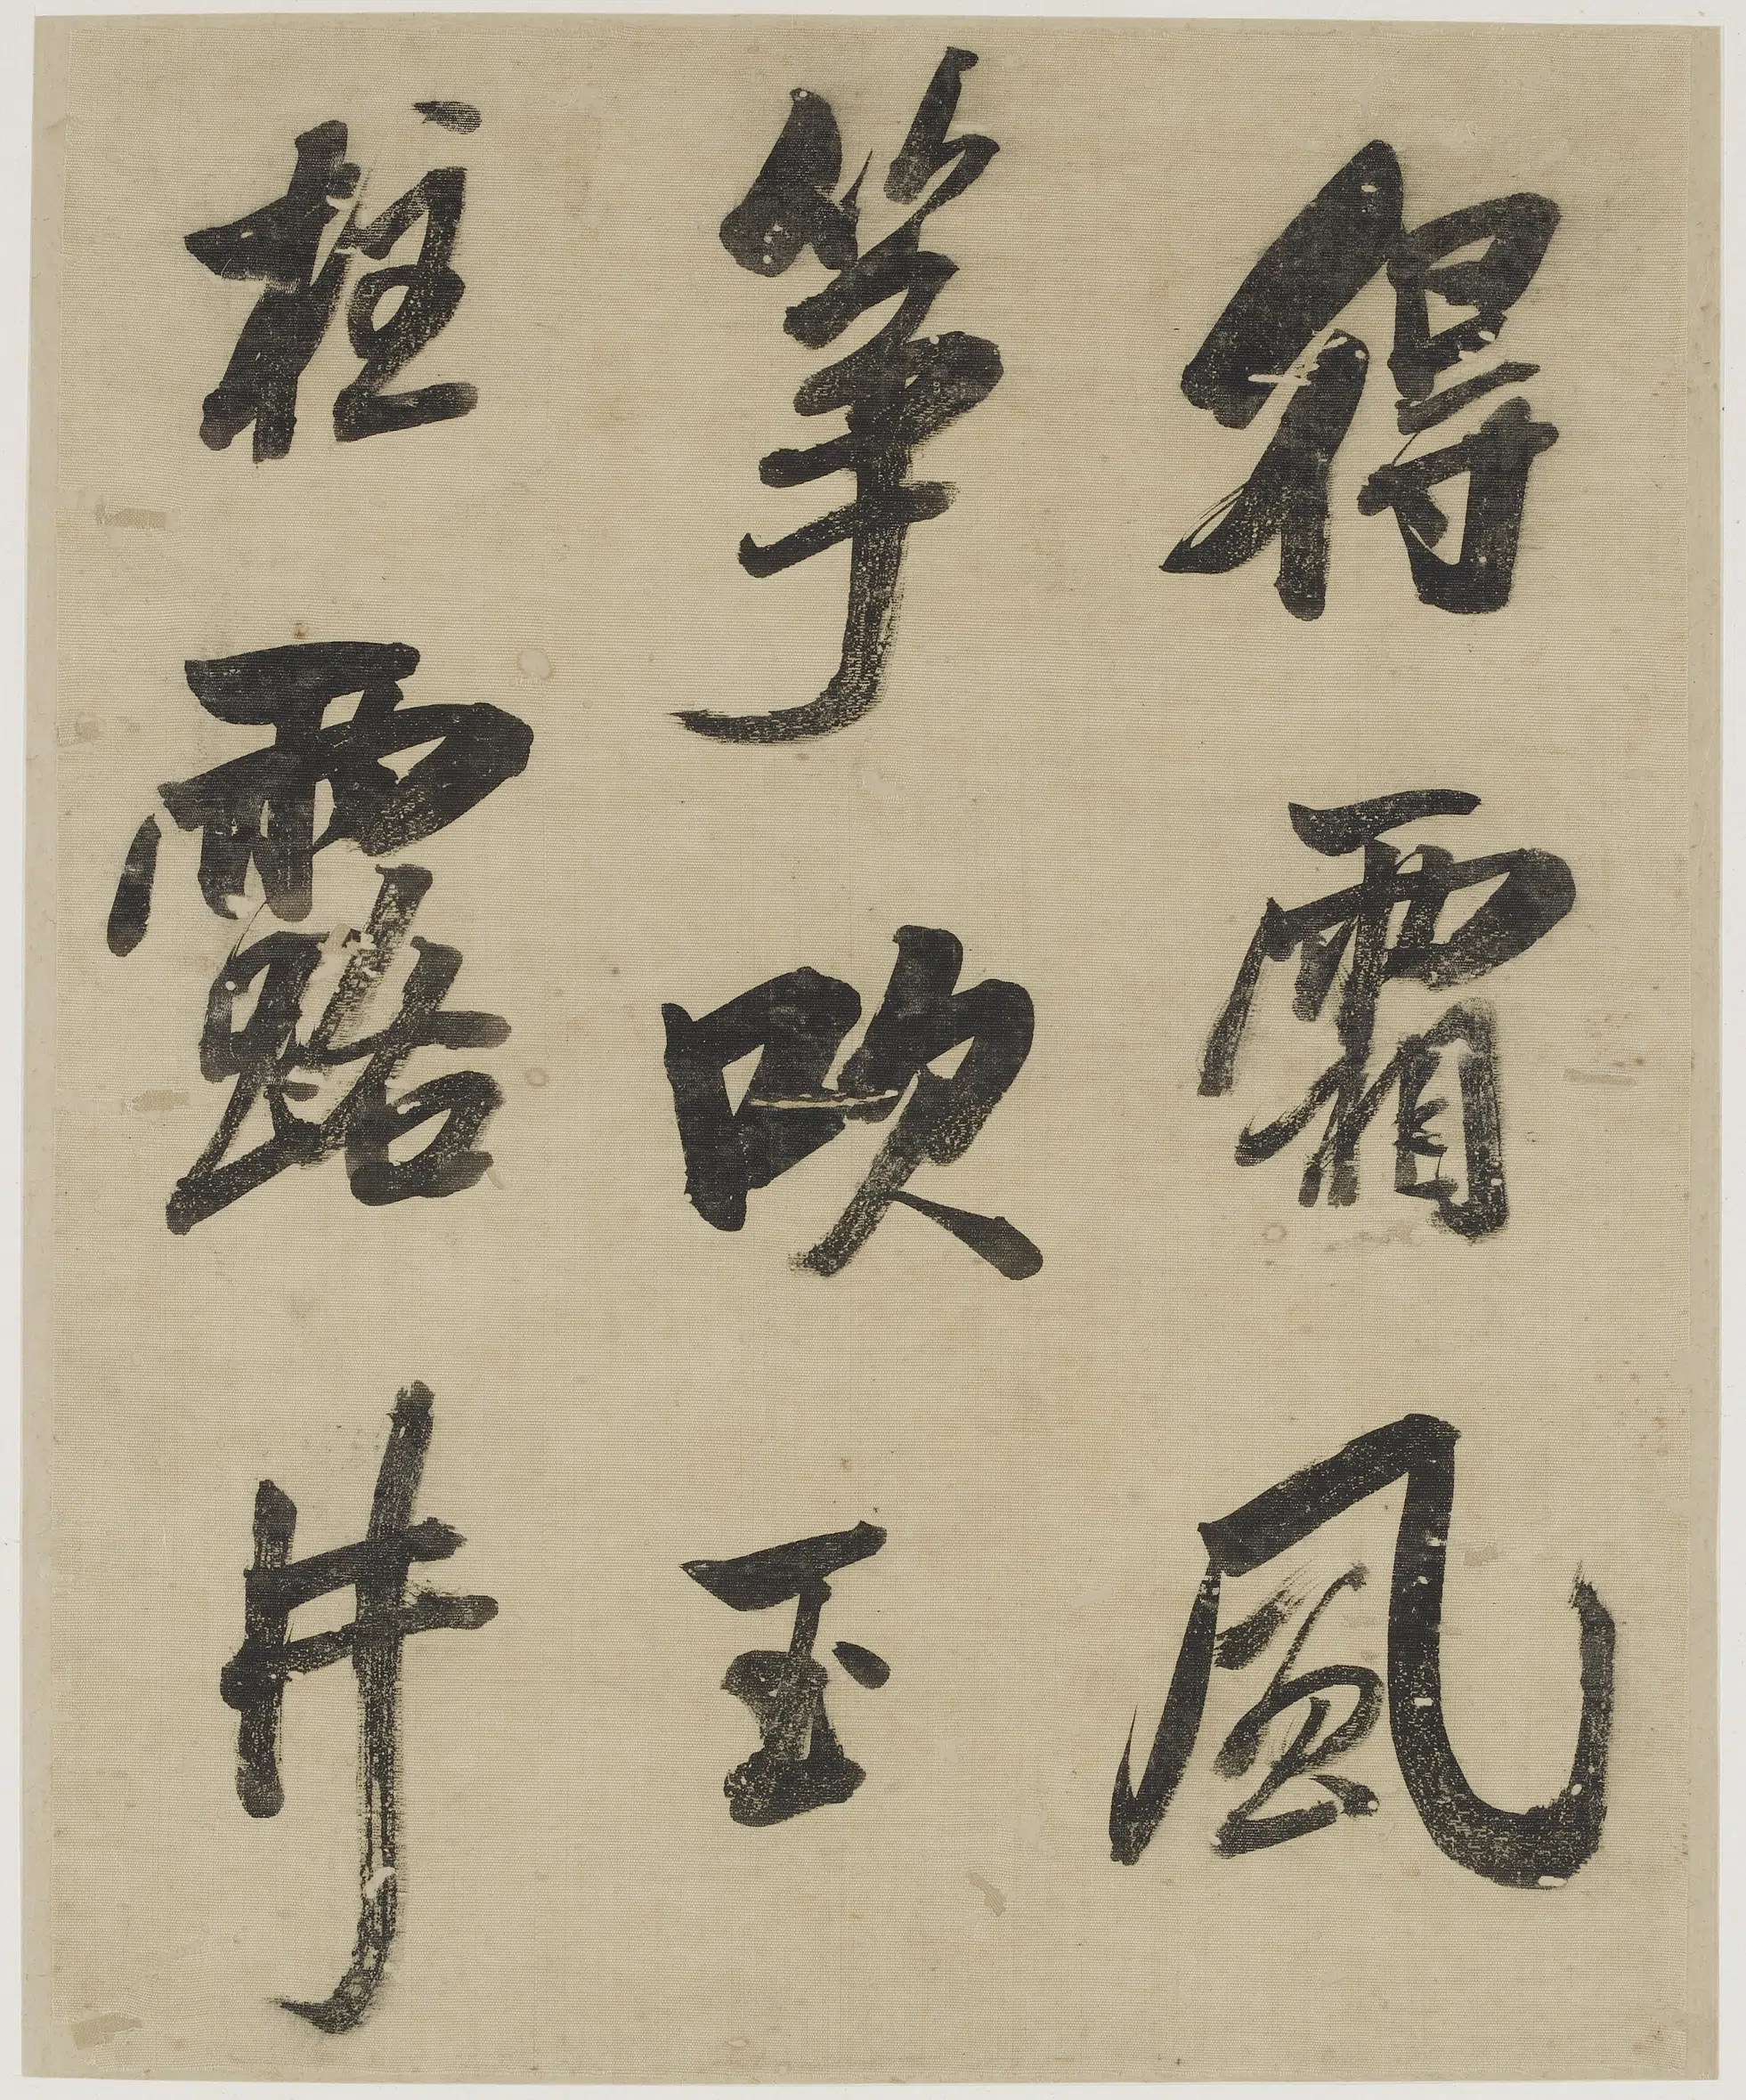 得霜風
筝吹玉
柱露井